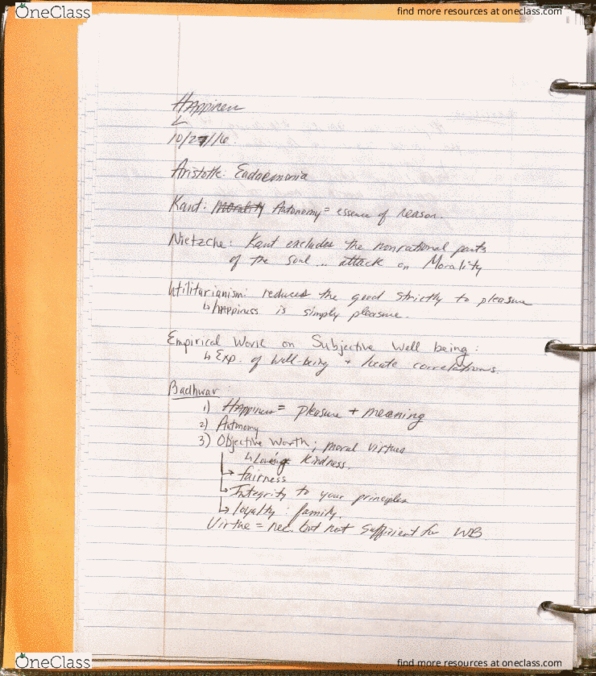 OneClass
find more resources at oneclass.com
Happiness
10/27/16
Aristotle: Eudaemonia
Kant: Morality Autonomy = essence of reason.
Nietzche: Kant excludes the nonrational parts
of the soul ... attack on Morality
Utilitarianism: reduces the good strictly to pleasure
↳ Happiness is simply pleasure.
Empirical Work on Subjective Well being:
↳ Exp. of well-being + locate correlations.
Badhwar:
1) Happiness = pleasure + meaning
2) Autonomy
3) Objective Worth; moral virtues
↳ Kindness.
↳ fairness
↳ Integrity to your principles
↳ loyalty: family.
Virtue = nec. but not sufficient for WB
OneClass
find more resources at oneclass.com